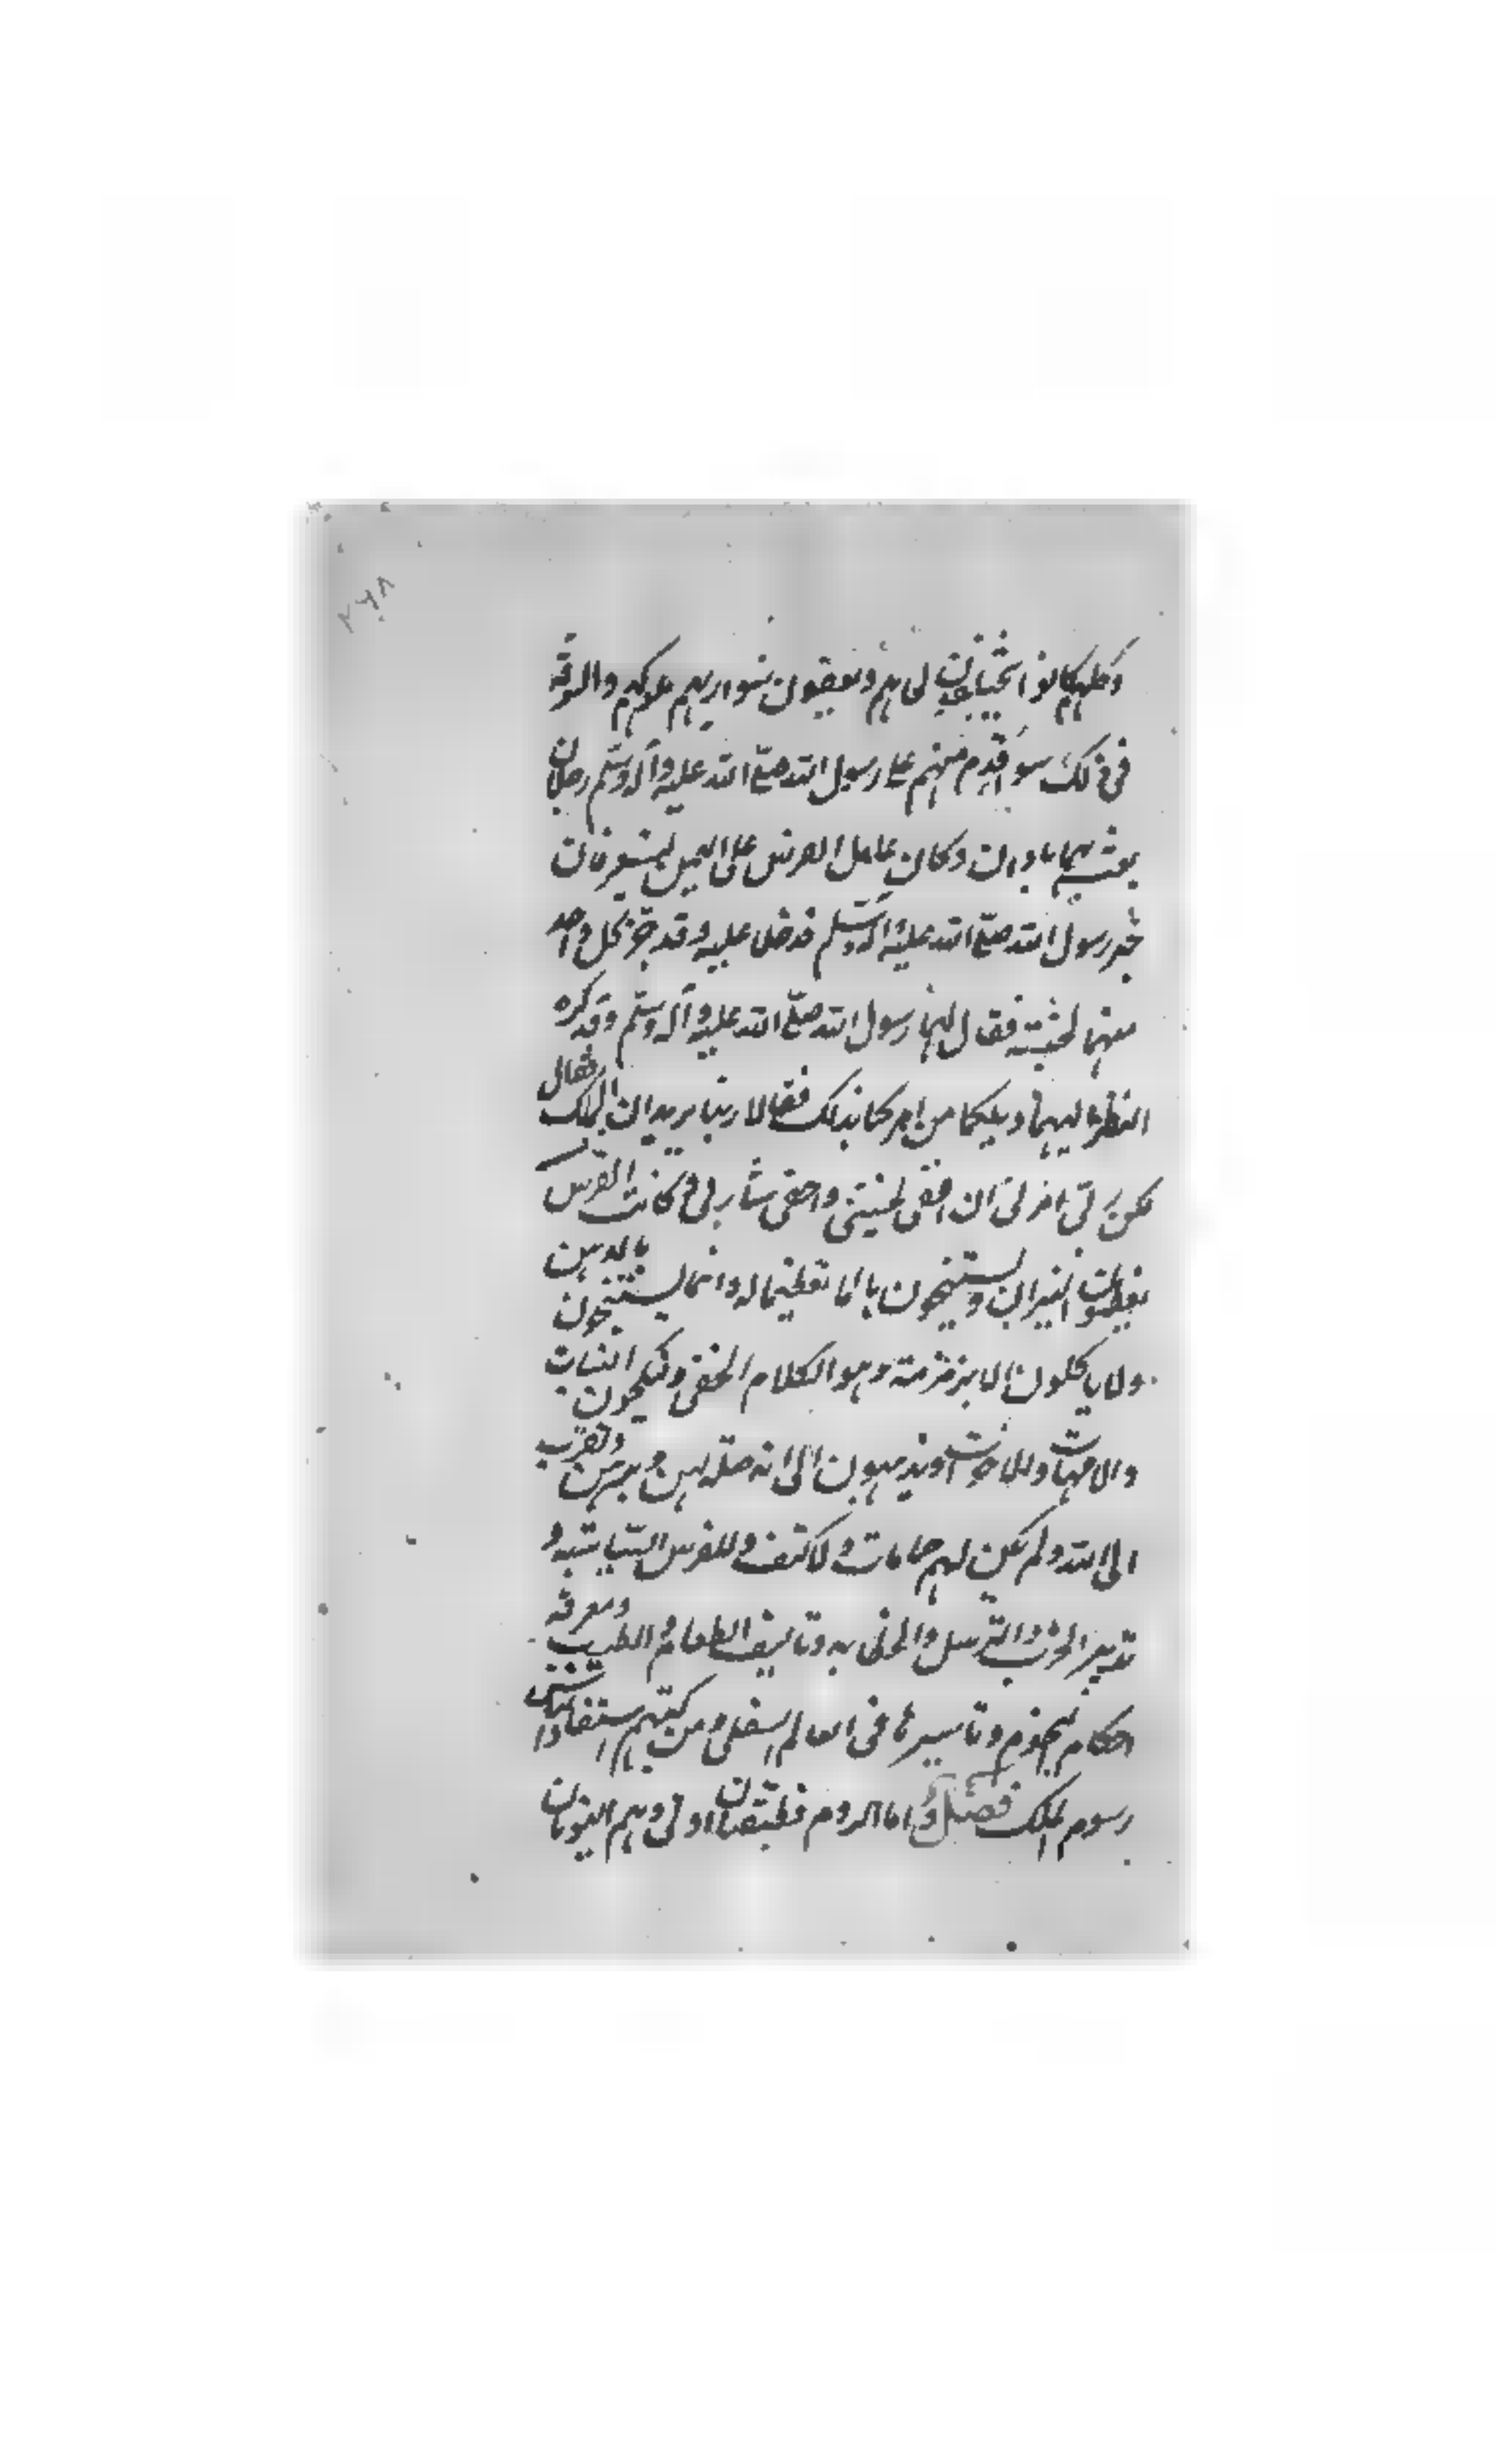 ٢٦٨
وكلهم كانوا يحتانون لحاهم ويعفون شواربهم ملوكهم والسوقة
في ذلك سواء قدم منهم على رسول الله صلى الله عليه وآله وسلم رجلان
بعث بهما باذان وكان عامل الفرس على اليمن ليتعرفان
خبر رسول الله صلى الله عليه وآله وسلم فدخلا عليه وقد جز كل واحد
منهما لحيته فقال لهما رسول الله صلى الله عليه وآله وسلم وقد كره
النظر اليهما ويلكما من امركما بذلك فقالا ربنا يريدان الملك فقال
لكن ربي امرني ان اعفي لحيتي واحفي شاربي وكانت الفرس
يعظمون النيران ولا يستنجون بالماء تعظيما له وانما يستنجون بالدهن
ولا ياكلون الا بزمزمة وهو الكلام الخفي وينكحون البنات
والامهات والاخوات ويذهبون الى انه صلة لهن وبر بهن وتقرب
الى الله ولم يكن لهم حمامات ولا كنف وللفرس السياسة و
تدبير الحرب والترسل والحذق به وتاليف الطعام والطبيب ومعرفة
احكام النجوم وتاسيرها في العالم السفلي ومن كتبهم استفاد الناس
رسوم الملك فصل و اما الروم فطبقتان اولى وهم اليونان